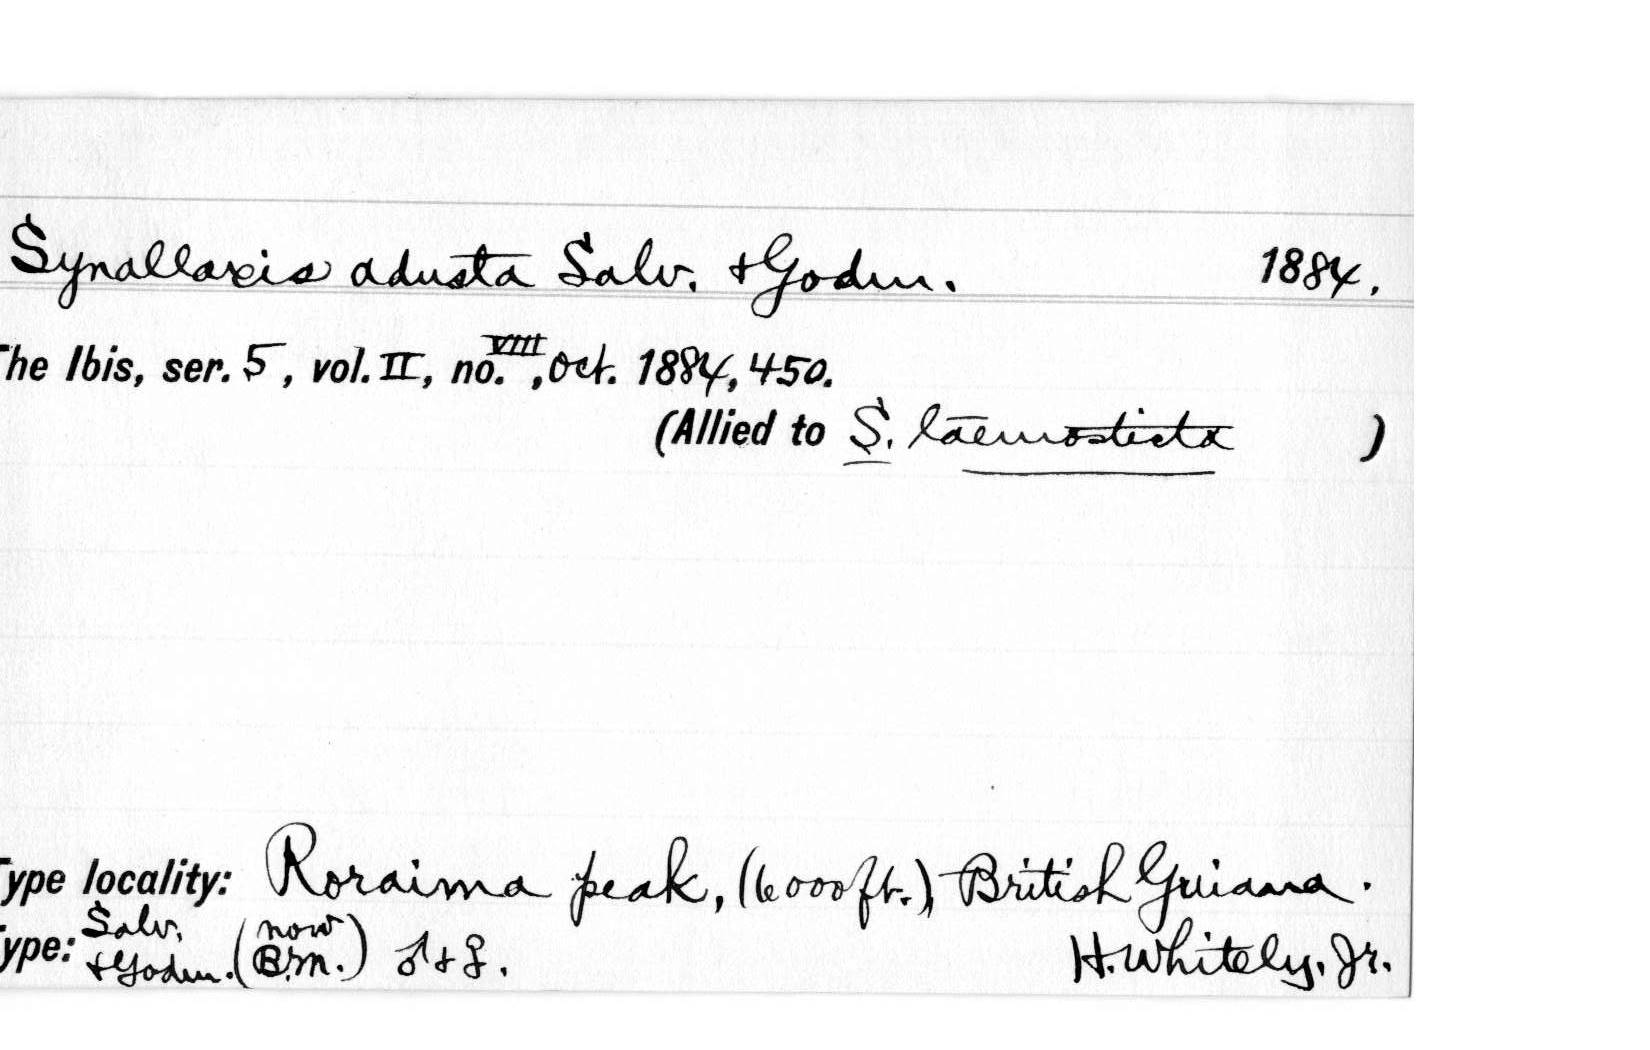 Synallaxis adusta Salv. + Godm. 1884.
The Ibis, ser. 5, vol. II, no. VIII, Oct. 1884, 450.
(Allied to S. laemosticta )
Type locality: Roraima peak, (6000 ft.), British Guiana.
Type: Salv. + Godm. (now B.M.) ♂ + ♀. H. Whitely, Jr.